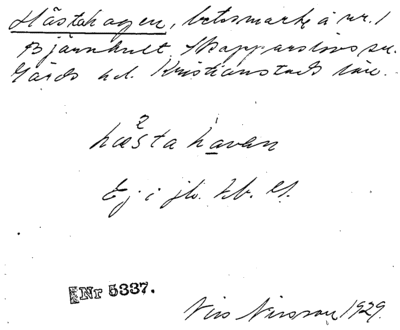 Hästahagen, betesmark å nr. 1
Bjärnhult Skepparslövs sn.
Gärds hd. Kristianstads län.
hæsta havan
Ej i jb. Kb. El.
Nr 5337.
Nils Nilsson 1929.